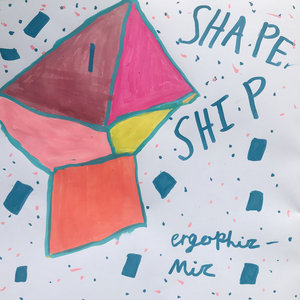 SHAPE
SHIP
ergophiz-
Miz